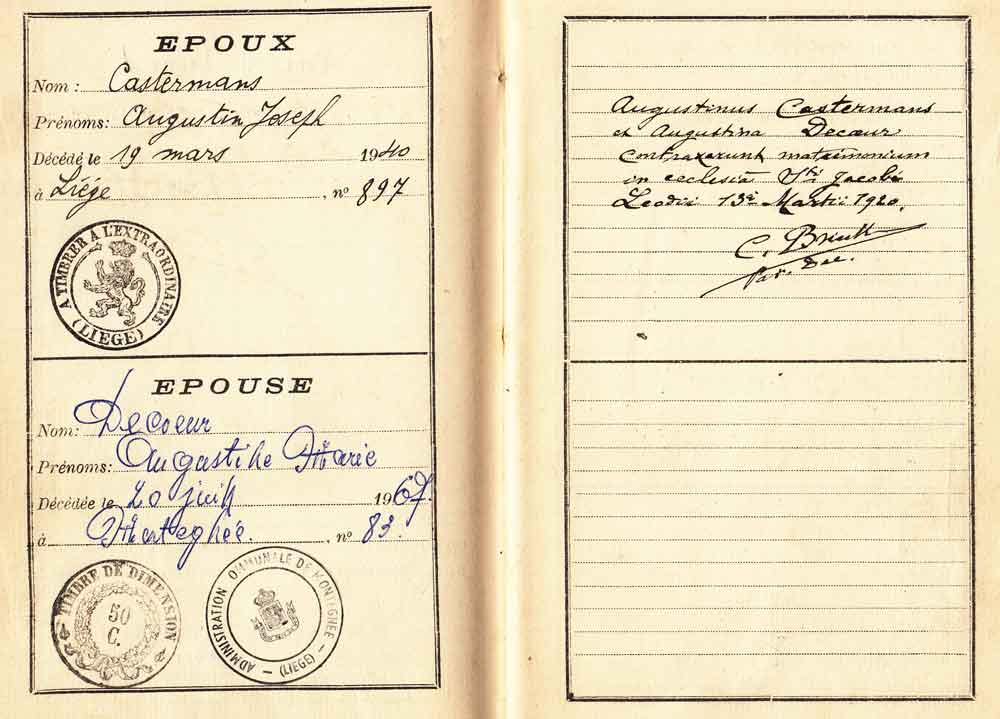 EPOUX
Nom : Castermans
Prénoms: Augustin Joseph
Décédé le 19 mars 1940
à Liége , nº 897
A TIMBRER A L'EXTRAORDINAIRE
(LIEGE)
EPOUSE
Nom: Decoeur
Prénoms: Augustine Marie
Décédée le 20 1967
à , nº 83.
TIMBRE DE DIMENSION
50
C.
ADMINISTRATION COMMUNALE DE MONTEGNÉE
(LIEGE)
Augustinus Castermans
et Augustina Decœur
contraxerunt matrimonium
in ecclesiâ Sti Jacobi
Leodii 13â Martii 1920.
C.